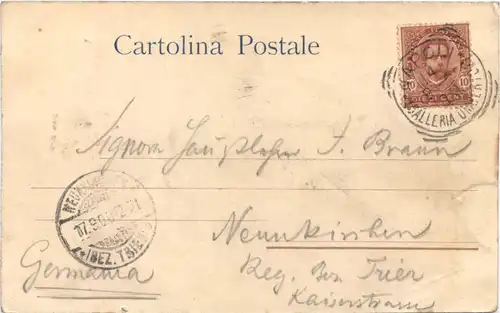 Cartolina Postale
10 10
GALLERIA UMBERTO
Signora Hauptlehrer J. Braun
NEUNKIRCHEN
17.9.01
(BEZ. TRIER)
Neunkirchen
Germania
Reg. Bez. Trier
Kaiserstrasse